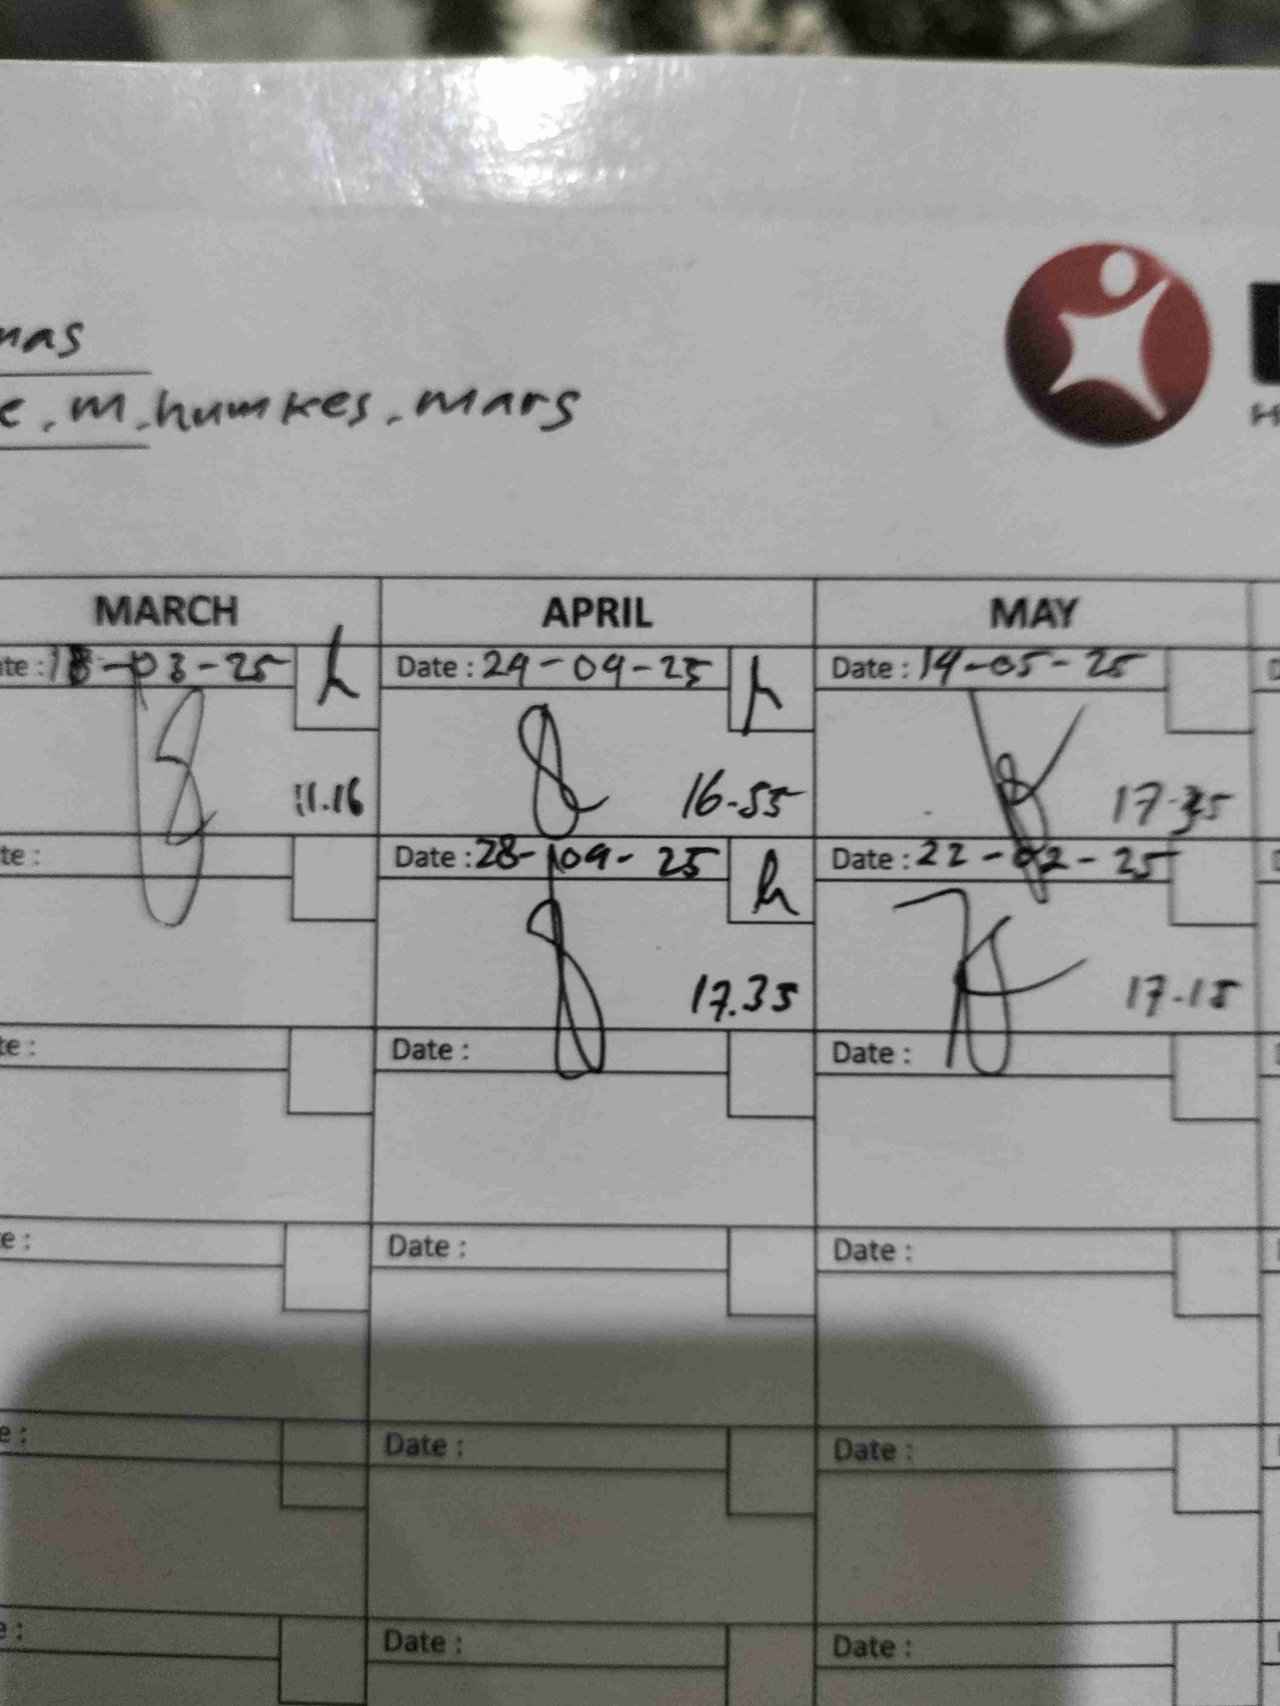 mas
e, m. humkes, mars
H
MARCH APRIL MAY
ate : 18-03-25 Date : 24-04-25 Date : 14-05-25
11.16 16-55 17-35
te: Date : 28-04-25 Date : 22-02-25
17.35 17-15
te : Date : Date :
e : Date : Date :
e : Date : Date :
e : Date : Date :